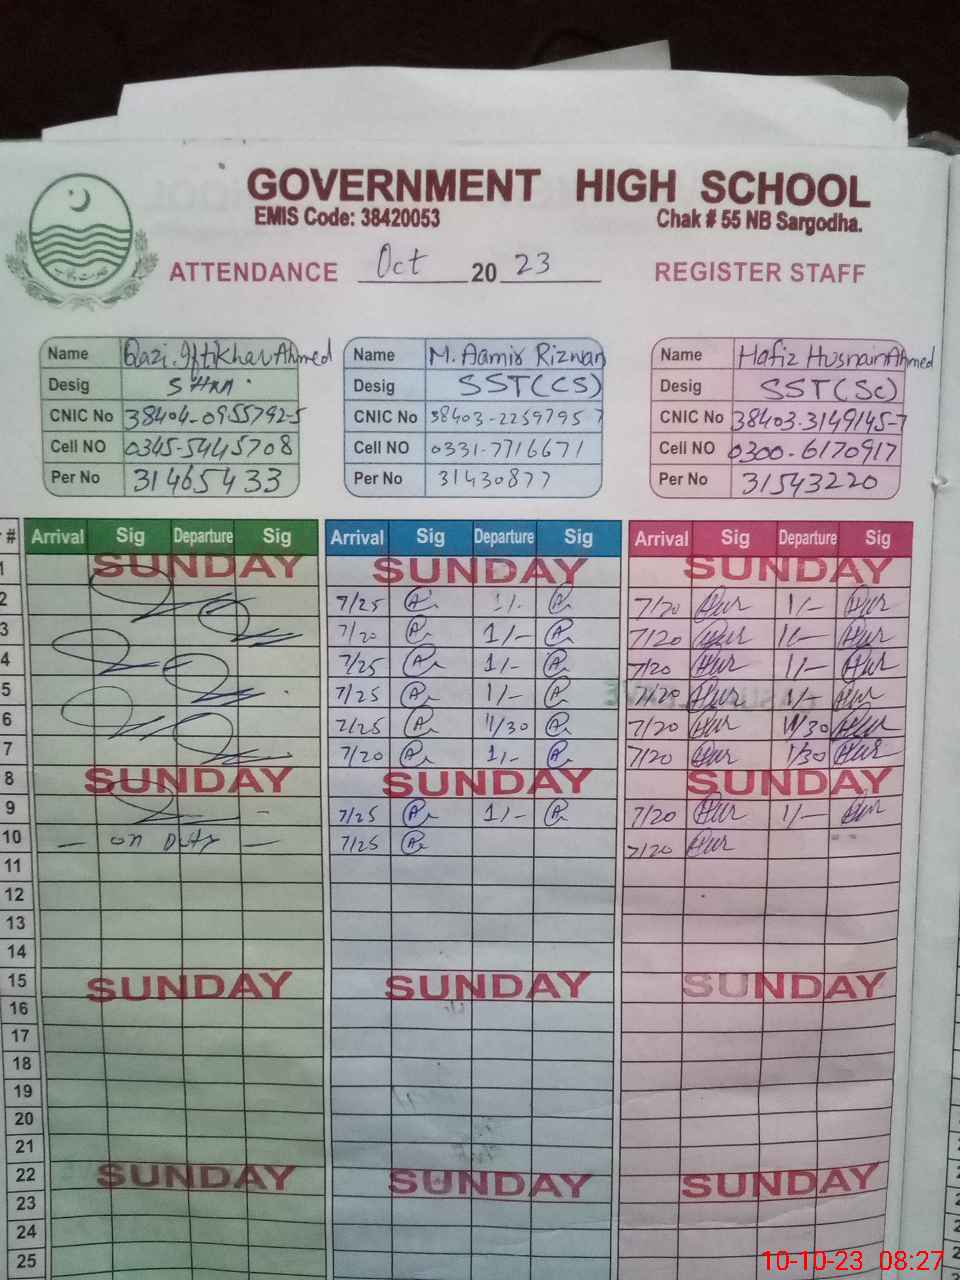 GOVERNMENT HIGH SCHOOL
EMIS Code: 38420053 Chak # 55 NB Sargodha.
ATTENDANCE Oct 20 23 REGISTER STAFF
Name Qazi Iftikhar Ahmed Name M. Aamir Rizwan Name Hafiz Husnain Ahmed
Desig Desig SST(CS) Desig SST(Sc)
CNIC No 38404-0955792-5 CNIC No 38403-2259795 7 CNIC No 38403-3149145-7
Cell NO 0345-5445708 Cell NO 0331-7716671 Cell NO 0300-6170917
Per No 31465433 Per No 31430877 Per No 31543220
# Arrival Sig Departure Sig Arrival Sig Departure Sig Arrival Sig Departure Sig
1 SUNDAY SUNDAY SUNDAY
2 7/25 1/- 7/20 1/-
3 7/20 1/- 7/20 1/-
4 7/25 1/- 7/20 1/-
5 7/25 1/- 7/20 1/-
6 7/25 11/30 7/20 11/30
7 7/20 1/- 7/20 1/30
8 SUNDAY SUNDAY SUNDAY
9 7/25 1/- 7/20 1/-
10 — on Duty — 7/25 7/20
11
12
13
14
15 SUNDAY SUNDAY SUNDAY
16
17
18
19
20
21
22 SUNDAY SUNDAY SUNDAY
23
24
25
10-10-23 08:27